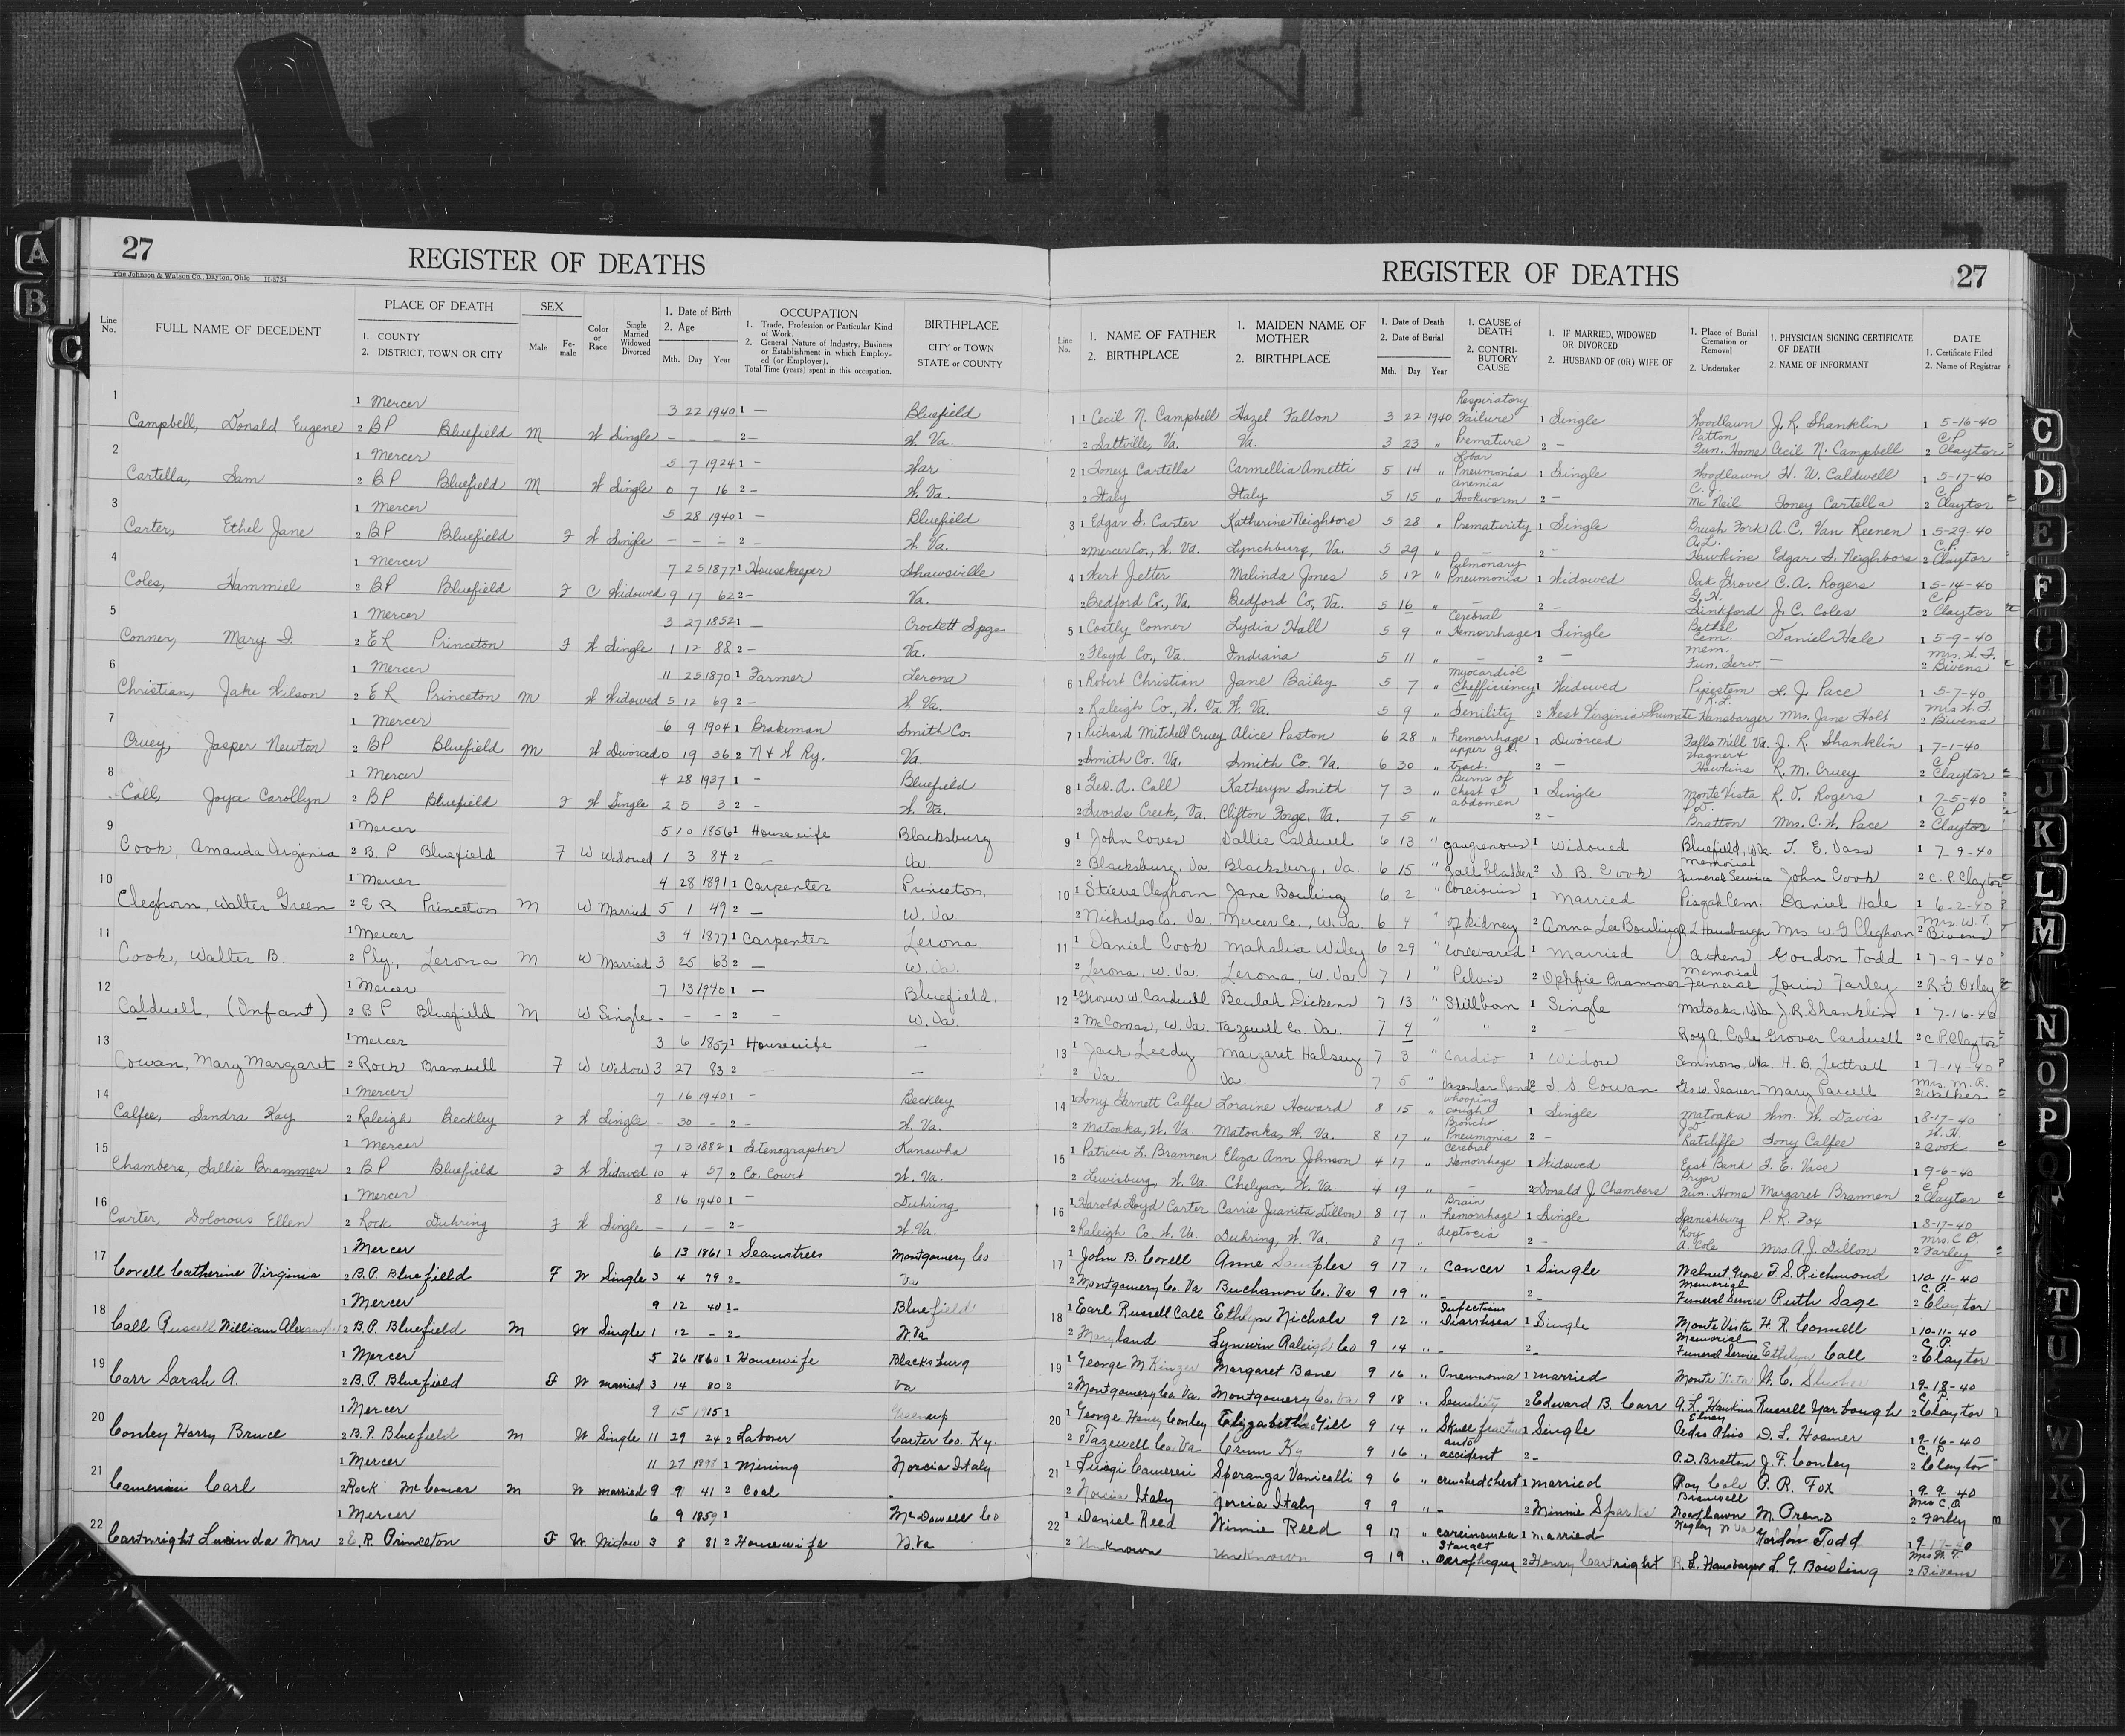 27
REGISTER OF DEATHS
The Johnson & Watson Co., Dayton, Ohio H-8754
Line No.
FULL NAME OF DECEDENT
PLACE OF DEATH
1. COUNTY
2. DISTRICT, TOWN OR CITY
SEX
Male Female
Color or Race
Single Married Widowed Divorced
1. Date of Birth
2. Age
Mth. Day Year
OCCUPATION
1. Trade, Profession or Particular Kind of Work.
2. General Nature of Industry, Business or Establishment in which Employed (or Employer).
Total Time (years) spent in this occupation.
BIRTHPLACE
CITY or TOWN
STATE or COUNTY
1 1 Mercer 3 22 1940 1 — Bluefield
Campbell, Donald Eugene 2 BP Bluefield M W Single — — — 2 — W. Va.
2 1 Mercer 5 7 1924 1 — War
Cartella, Sam 2 BP Bluefield M W Single 0 7 16 2 — W. Va.
3 1 Mercer 5 28 1940 1 — Bluefield
Carter, Ethel Jane 2 BP Bluefield F W Single — — — 2 — W. Va.
4 1 Mercer 7 25 1877 1 Housekeeper Shawsville
Coles, Hammiel 2 BP Bluefield F C Widowed 9 17 62 2 — Va.
5 1 Mercer 3 27 1852 1 — Crockett Spgs
Conner, Mary I. 2 ER Princeton F W Single 1 12 88 2 — Va.
6 1 Mercer 11 25 1870 1 Farmer Lerona
Christian, Jake Wilson 2 ER Princeton M W Widowed 5 12 69 2 — W. Va.
7 1 Mercer 6 9 1904 1 Brakeman Smith Co.
Cruey, Jasper Newton 2 BP Bluefield M W Divorced 0 19 36 2 N & W Ry. Va.
8 1 Mercer 4 28 1937 1 — Bluefield
Call, Joya Carollyn 2 BP Bluefield F W Single 2 5 3 2 — W. Va.
9 1 Mercer 5 10 1856 1 Housewife Blacksburg
Cook, Amanda Virginia 2 B.P Bluefield F W Widowed 1 3 84 2 — Va.
10 1 Mercer 4 28 1891 1 Carpenter Princeton,
Cleghorn, Walter Green 2 E R Princeton M W Married 5 1 49 2 — W. Va
11 1 Mercer 3 4 1877 1 Carpenter Lerona
Cook, Walter B. 2 Ply., Lerona M W Married 3 25 63 2 — W. Va.
12 1 Mercer 7 13 1940 1 — Bluefield.
Caldwell, (Infant) 2 B P Bluefield M W Single - - - 2 - W. Va.
13 1 Mercer 3 6 1857 1 Housewife —
Cowan, Mary Margaret 2 Rock Bramwell F W Widow 3 27 83 2 —
14 1 Mercer 7 16 1940 1 - Beckley
Calfee, Sandra Kay 2 Raleigh Beckley F W Single — 30 - 2 - W. Va.
15 1 Mercer 7 13 1882 1 Stenographer Kanawha
Chambers, Sallie Brammer 2 BP Bluefield F W Widowed 10 4 57 2 Co. Court W. Va.
16 1 Mercer 8 16 1940 1 — Duhring
Carter, Dolorous Ellen 2 Rock Duhring F W Single - 1 - 2 - W. Va.
17 1 Mercer 6 13 1861 1 Seamstress Montgomery Co
Covell Catherine Virginia 2 B.P. Bluefield F W Single 3 4 79 2 - Va
18 1 Mercer 9 12 40 1 - Bluefield
Call Russell William 2 B.P. Bluefield M W Single 1 12 - 2 - W Va
19 1 Mercer 5 26 1860 1 Housewife Blacksburg
Carr Sarah A. 2 B.P. Bluefield F W married 3 14 80 2 Va
20 1 Mercer 9 15 1915 1
Conley Harry Bruce 2 B.P. Bluefield M W Single 11 29 24 2 Laborer Carter Co. Ky.
21 1 Mercer 11 27 1 Mining Norcia Italy
Carl 2 Rock McComas M W married 9 9 41 2 Coal -
22 1 Mercer 6 9 1859 1 McDowell Co
Cartwright Lucinda Mrs 2 E.R. Princeton F W. Widow 3 8 81 2 Housewife W. Va
REGISTER OF DEATHS
27
Line No.
1. NAME OF FATHER
2. BIRTHPLACE
1. MAIDEN NAME OF MOTHER
2. BIRTHPLACE
1. Date of Death
2. Date of Burial
Mth. Day Year
1. CAUSE of DEATH
2. CONTRIBUTORY CAUSE
1. IF MARRIED, WIDOWED OR DIVORCED
2. HUSBAND OF (OR) WIFE OF
1. Place of Burial Cremation or Removal
2. Undertaker
1. PHYSICIAN SIGNING CERTIFICATE OF DEATH
2. NAME OF INFORMANT
DATE
1. Certificate Filed
2. Name of Registrar
1 1 Cecil N. Campbell Hazel Fallon 3 22 1940 Respiratory Failure 1 Single Woodlawn J. R. Shanklin 1 5-16-40
2 Saltville, Va. Va. 3 23 " Premature 2 — Patton Fun. Home Cecil N. Campbell 2 C P Claytor
2 1 Toney Cartella Carmellia Ametti 5 14 " Lobar Pneumonia 1 Single Woodlawn H. W. Caldwell 1 5-17-40
2 Italy Italy 5 15 " anemia Hookworm 2 — C. J. Mc Neil Toney Cartella 2 C P Claytor
3 1 Edgar S. Carter Katherine Neighbors 5 28 " Prematurity 1 Single Brush Fork A.C. Van Reenen 1 5-29-40
2 Mercer Co., W. Va. Lynchburg, Va. 5 29 " — 2 — A.L. Hawkins Edgar S. Neighbors 2 C.P. Claytor
4 1 Wert Jetter Malinda Jones 5 12 " Pulmonary Pneumonia 1 Widowed Oak Grove C. A. Rogers 1 5-14-40
2 Bedford Co., Va. Bedford Co, Va. 5 16 " — 2 — G. H. Sinkford J. C. Coles 2 C P Claytor
5 1 Costly Conner Lydia Hall 5 9 " Cerebral Hemorrhage 1 Single Bethel Cem. Daniel Hale 1 5-9-40
2 Floyd Co., Va. Indiana 5 11 " — 2 — Mem. Fun. Serv. — 2 Mrs. W. T. Bivens
6 1 Robert Christian Jane Bailey 5 7 " Myocardial 1 Widowed Pipestem L. J. Pace 1 5-7-40
2 Raleigh Co., W. Va. W. Va. 5 9 " Senility 2 West Virginia Shumate R.L. Hansbarger Mrs. Jane Holt 2 Mrs W. T. Bivens
7 1 Richard Mitchell Cruey Alice Paston 6 28 " hemorrhage 1 Divorced Falls Mill Va. J. R. Shanklin 1 7-1-40
2 Smith Co. Va. Smith Co. Va. 6 30 " upper g.i. tract. 2 — Wagner & Hawkins R. M. Cruey 2 C P Claytor
8 1 Geo. A. Call Katheryn Smith 7 3 " Burns of chest & abdomen 1 Single Monte Vista R. V. Rogers 1 7-5-40
2 Swords Creek, Va. Clifton Forge, Va. 7 5 " 2 — P.D. Bratton Mrs. C. W. Pace 2 C P Claytor
9 1 John Cover Dallie Caldwell 6 13 " gangrenous 1 Widowed Bluefield, W.Va. T. E. Vass 1 7-9-40
2 Blacksburg, Va Blacksburg, Va. 6 15 " gall bladder 2 S. B. Cook Memorial Funeral Service John Cook 2 C. P. Claytor
10 1 Steve Cleghorn Jane Bowling 6 2 " 1 Married Pisgah Cem. Daniel Hale 1 6-2-40
2 Nicholas Co. Va. Mercer Co., W. Va 6 4 " of Kidney 2 Anna Lee Bowling Hansbarger Mrs W. G Cleghorn 2 Mrs. W. T. Bivens
11 1 Daniel Cook Mahalia Wiley 6 29 " 1 Married Athens Gordon Todd 1 7-9-40
2 Lerona. W. Va Lerona, W. Va. 7 1 " Pelvis 2 Ophfie Brammer Memorial Funeral Louis Farley 2 R. G Oxley
12 1 Grover W. Cardwell Beulah Dickens 7 13 " Stillborn 1 Single Matoaka, W.Va J. R. Shanklin 1 7-16-40
2 McComas, W. Va. Tazewell Co. Va. 7 4 " " 2 — Roy A. Cole Grover Cardwell 2 C. P. Claytor
13 1 Jack Leedy Margaret Halsey 7 3 " Cardio 1 Widow Simmons, W.Va H. B. Luttrell 1 7-14-40
2 Va. Va. 7 5 " Vascular Renal 2 I. S. Cowan Geo W. Seaver Mary Parcell 2 Mrs. M. R. Walker
14 1 Tony Garnett Calfee Loraine Howard 8 15 " whooping cough 1 Single Matoaka Wm. W. Davis 1 8-17-40
2 Matoaka, W. Va. Matoaka, W. Va. 8 17 " Broncho Pneumonia 2 — J.D. Ratcliffe Tony Calfee 2 H. H. Cook
15 1 Patricia L. Brannen Eliza Ann Johnson 4 17 " Cerebral Hemorrhage 1 Widowed East Bank T. E. Vase 1 9-6-40
2 Lewisburg, W. Va. Chelyan, W. Va. 4 19 " — 2 Donald J Chambers Pryor Fun. Home Margaret Brannen 2 C P Claytor
16 1 Harold Floyd Carter Carrie Juanita Dillon 8 17 " Brain hemorrhage 1 Single Spanishburg P. R. Fox 1 8-17-40
2 Raleigh Co. W. Va. Duhring, W. Va. 8 17 " 2 — Roy A. Cole Mrs. A. J. Dillon 2 Mrs. C. O. Farley
17 1 John B. Covell Anne Samples 9 17 " Cancer 1 Single Walnut Grove T. S. Richmond 1 10-11-40
2 Montgomery Co. Va Buchanon Co. Va 9 19 " - 2 - Memorial Funeral Service Ruth Sage 2 C. P. Claytor
18 1 Earl Russell Call Ethelyn Nichols 9 12 " Infectious Diarrhsea 1 Single Monte Vista H. R. Connell 1 10-11-40
2 Maryland Lynwin Raleigh Co 9 14 " - 2 - Memorial Funeral Service Ethelyn Call 2 C. P. Claytor
19 1 George M Kinzer Margaret Bane 9 16 " Pneumonia 1 married Monte Vista W. C. Slusher 1 9-18-40
2 Montgomery Co. Va. Montgomery Co. Va 9 18 " Senility 2 Edward B. Carr A. L. Hawkins Russell Yarbough 2 C. P. Claytor
20 1 George Henry Conley Elizabeth Gill 9 14 " Skull fracture 1 Single Ohio D. L. Hosmer 1 9-16-40
2 Tazewell Co. Va Crum Ky 9 16 " auto accident 2 - P. D. Bratton J. F. Conley 2 C. P. Claytor
21 1 Luigi Camereri Speranza Vanicelli 9 6 " crushed chest 1 married Roy Cole P. R. Fox 1 9-9-40
2 Norcia Italy Norcia Italy 9 9 " - 2 Minnie Sparks Bramwell M. 2 Mrs C. O. Farley
22 1 Daniel Reed Winnie Reed 9 17 " carcinomea 1 married Kegley W Va Gordon Todd 1 9-17-40
2 Unknown Unknown 9 19 " 2 Henry Cartright R. L. Hansbarger L. G. Bowling 2 Mrs W. T. Bivens
A
B
C
C
D
E
F
G
H
I
J
K
L
M
N
O
P
Q
T
U
W
X
Y
Z